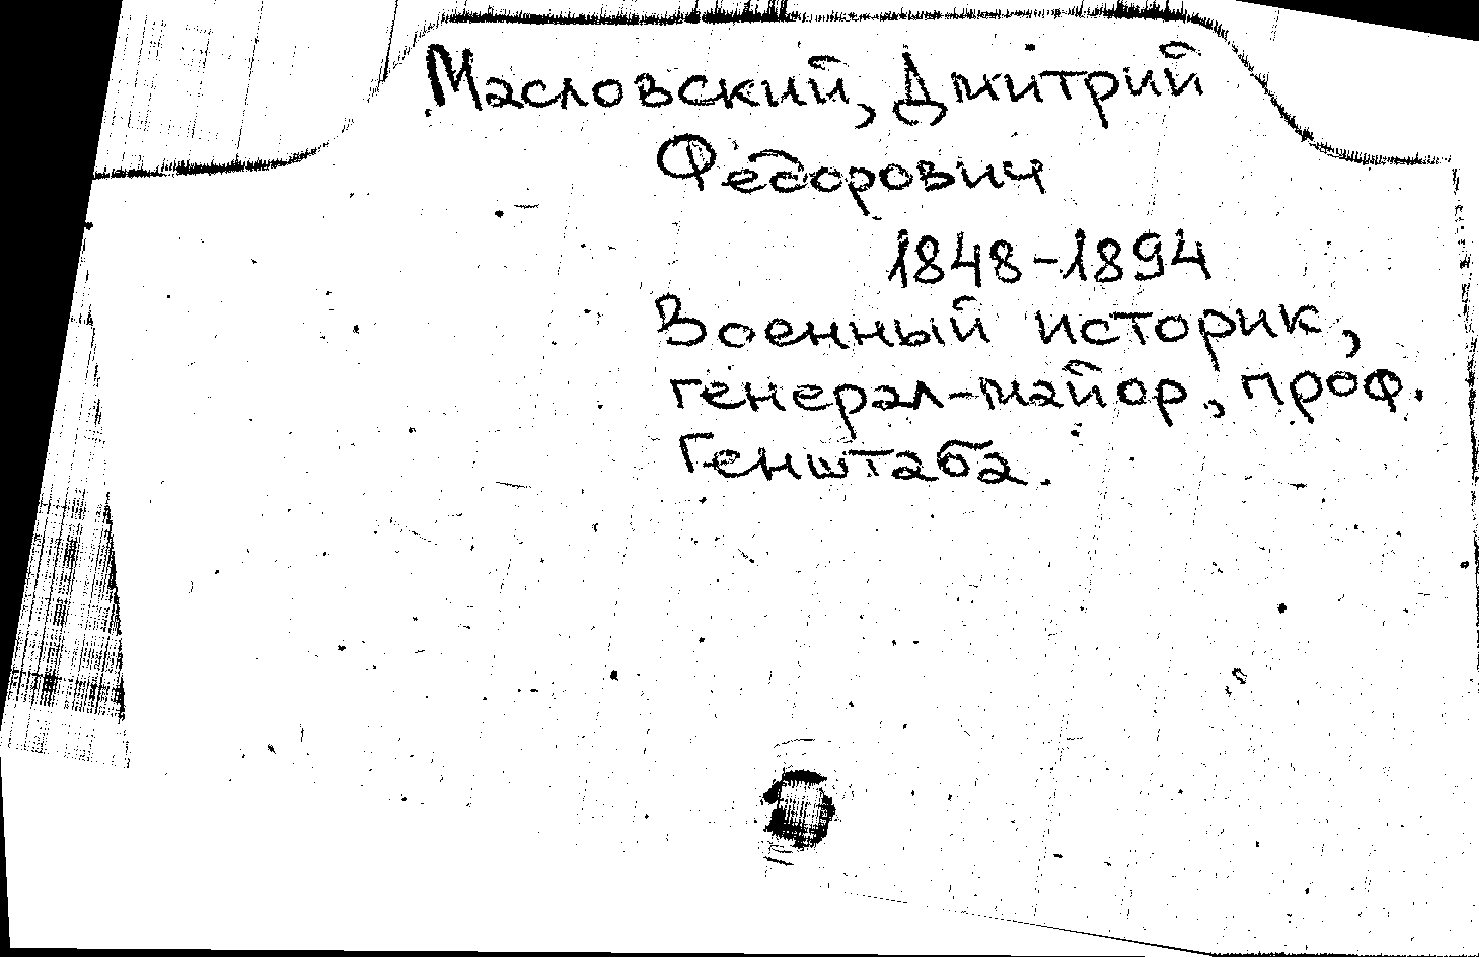 Масловский, Дмитрий
Федорович
1848-1894
Военный историк,
генерал-майор, проф.
Генштаба.